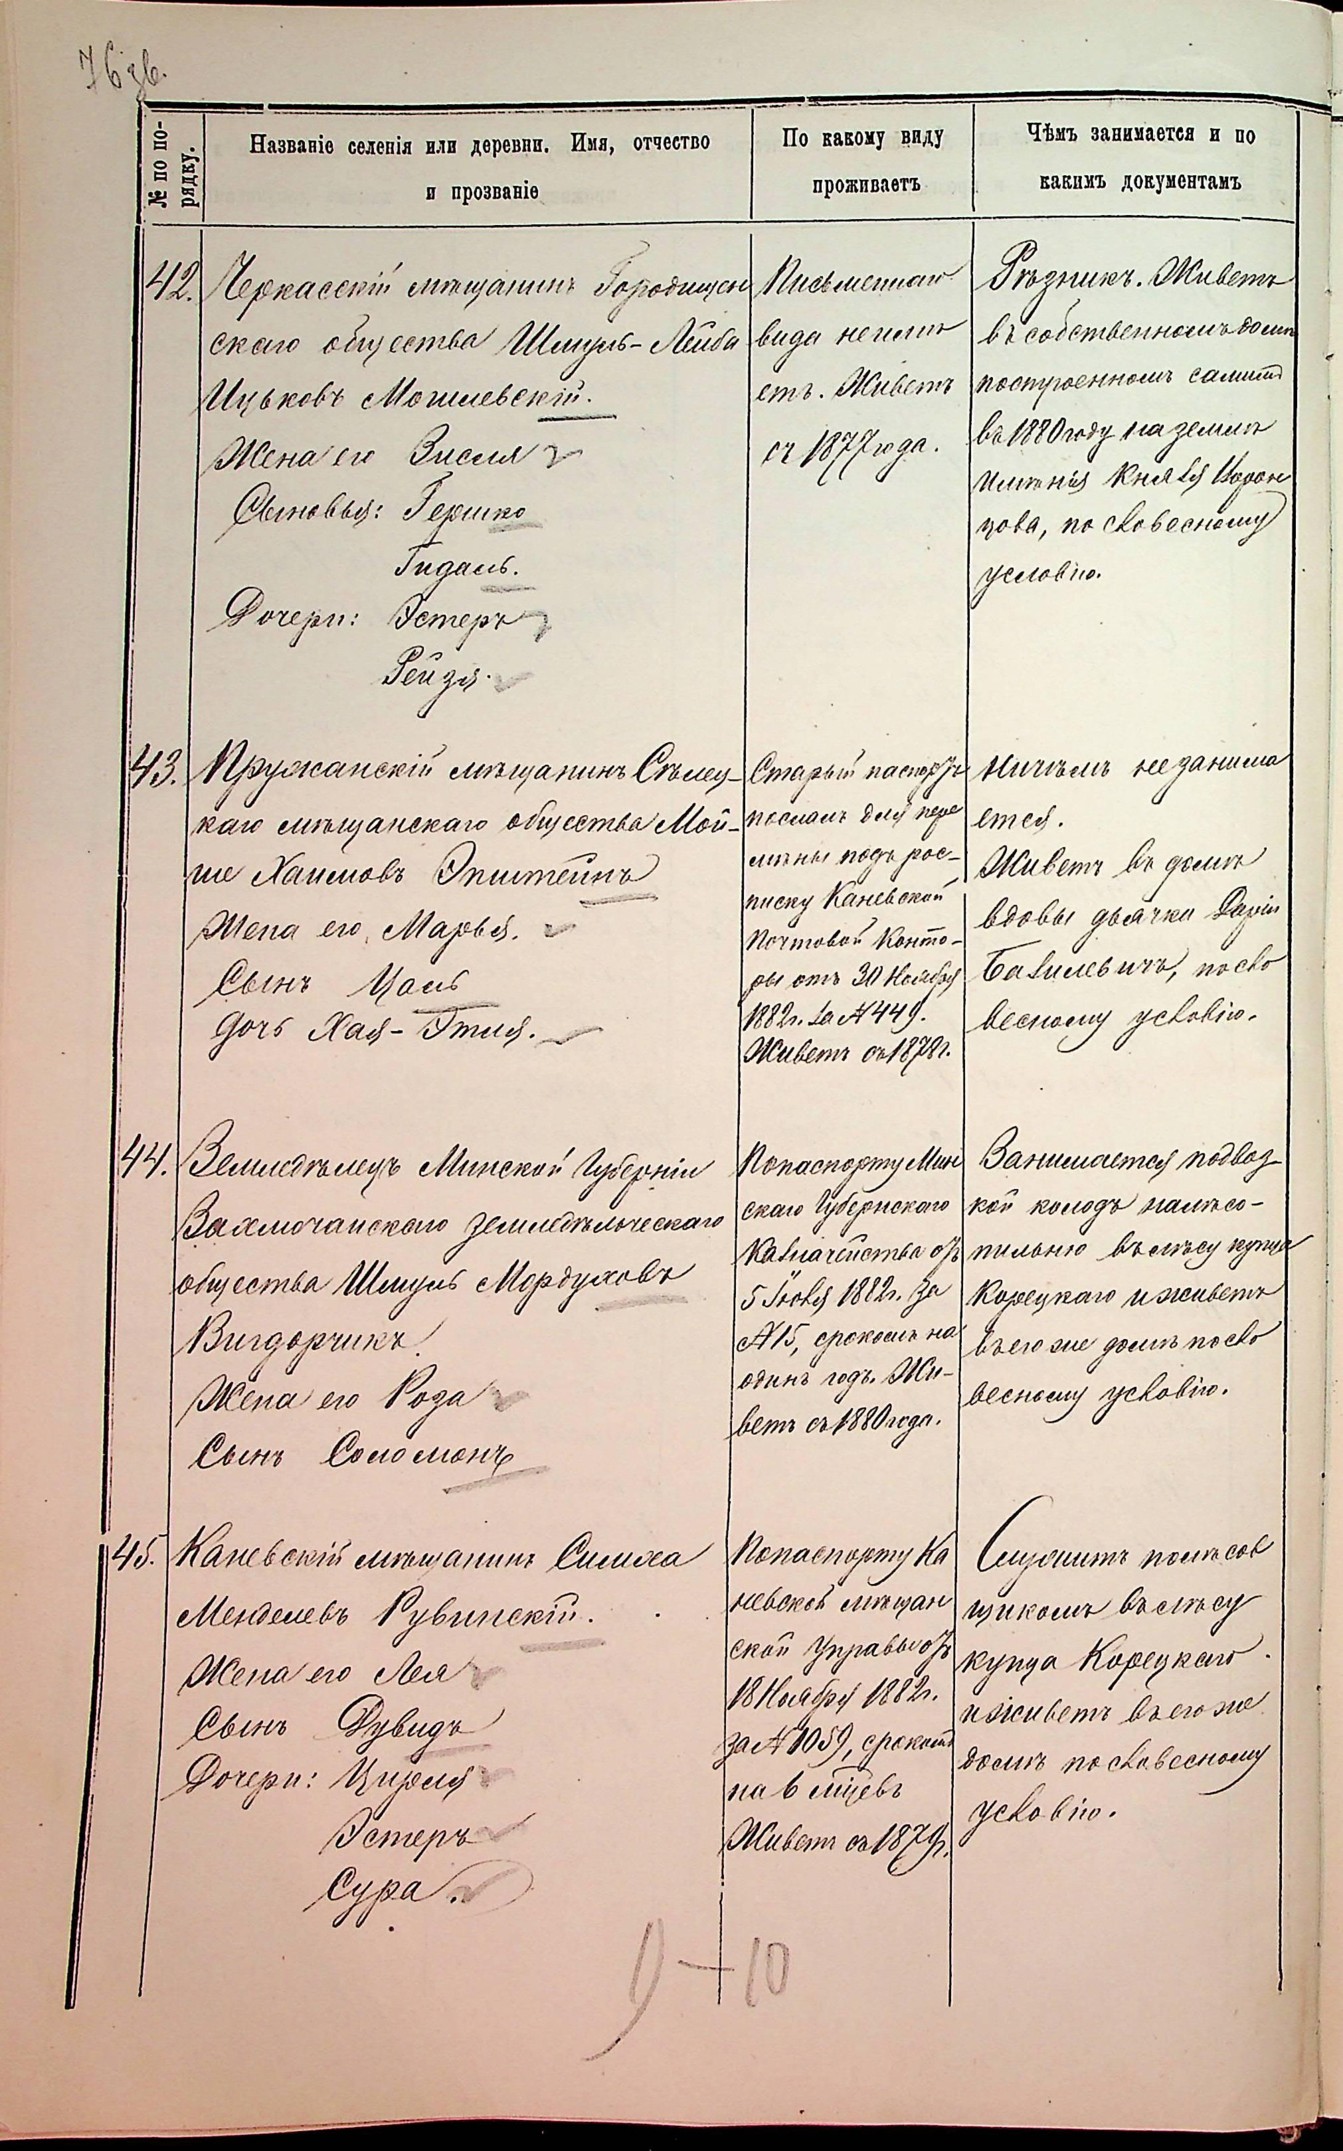 76 зв.
№ по по-
рядку.
Названіе селенія или деревни. Имя, отчество
и прозваніе
По какому виду
проживаетъ
Чѣмъ занимается и по
какимъ документамъ
42.
Черкасскій мѣщанинъ Городищен
скаго общества Шмуль-Лейба
Ицьковъ Могилевскій.
Жена его Зисля
Сыновья: Гершко
Гидаль.
Дочери: Эстеръ
Рейзя.
Письменнаго
вида неимѣ
етъ. Живетъ
съ 1877 года.
Рѣзникъ. Живетъ
въ собственномъ домѣ
построенномъ самимъ
въ 1880 году на землѣ
имѣнія Князя Ворон
цова, по словесному
условію.
43.
Пружанскій мѣщанинъ Сѣлец-
каго мѣщанскаго общества Мой-
ше Хаимовъ Эпштейнъ
Жена его Марья.
Сынъ Цаль
дочь Хая-Этля.
Старый паспортъ
посланъ для пере
мѣны подъ рос-
писку Каневской
Почтовой Конто-
ры отъ 30 Ноября
1882г. за № 449.
Живетъ съ 1878г.
Ничѣмъ не занима
ется.
Живетъ въ домѣ
вдовы дьячки Даріи
Базилевичъ, по сло
весному условію.
44.
Земледѣлецъ Минской Губерніи
Вахмочанскаго земледѣльческаго
общества Шмуль Мордуховъ
Вигдорчикъ.
Жена его Роза
Сынъ Соломонъ
По паспорту Мин
скаго Губернскаго
Казначейства отъ
5 Іюня 1882г. за
№ 15, срокомъ на
одинъ годъ. Жи-
ветъ съ 1880 года.
Занимается подвоз-
кой колодъ на лѣсо-
пильню въ лѣсу купца
Корецкаго и живетъ
въ его же домѣ по сло
весному условію.
45.
Каневскій мѣщанинъ Симха
Менделевъ Рувинскій.
Жена его Лея
Сынъ Дувидъ
Дочери: Цирля
Эстеръ
Сура.
По паспорту Ка
невской мѣщан
ской Управы отъ
18 Ноября 1882г.
за № 1059, срокомъ
на 6 мѣцевъ
Живетъ съ 1879г.
Служитъ полѣсов
щикомъ въ лѣсу
купца Корецкаго
и живетъ въ его же
домѣ по словесному
условію.
9 + 10